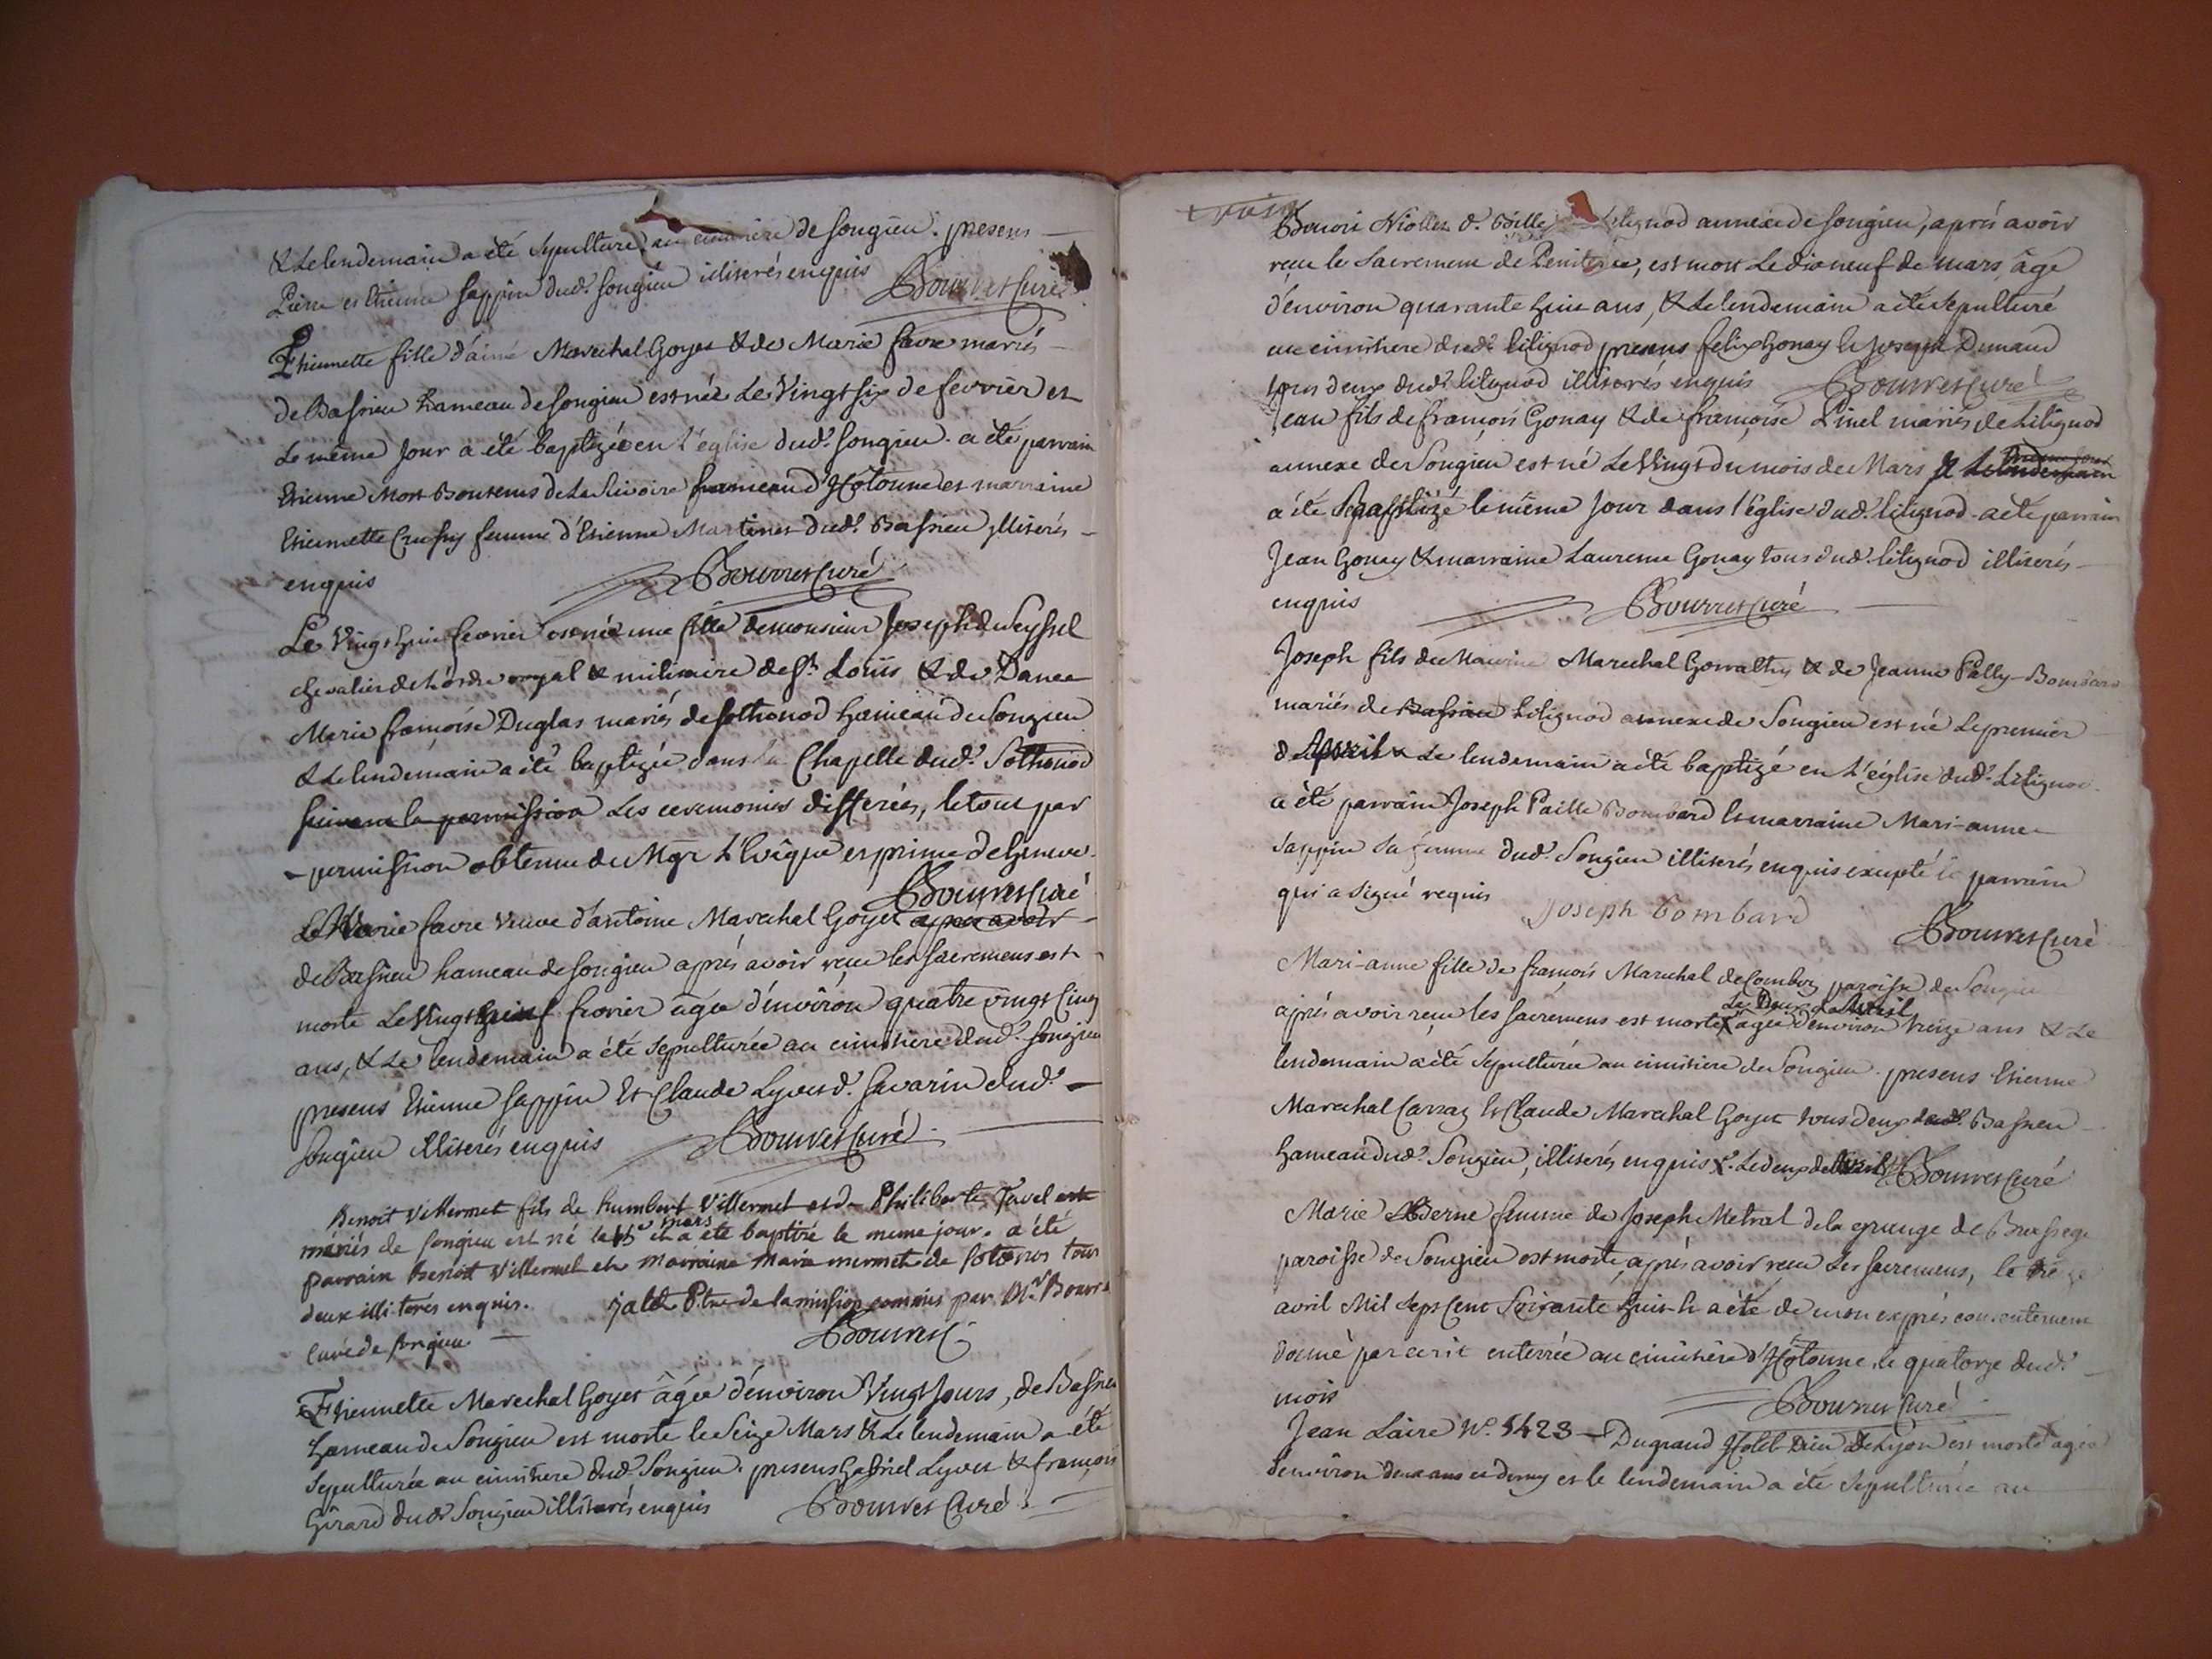 & le lendemain a été sepulturé au cimitiere de songieu. presens
Pierre et Etienne sappin dud.t songieu illiterés enquis Bouvret Curé
Etiennette fille d'aimé Marechal Goyet & de Marie favre mariés
de Bassieu hameau de songieu est née Le Vingt six de fevrier et
Le même Jour a été baptizée en L'église dud.t songieu. a été parrain
Etienne Mort Boutenus de La Rivoire hameau d'Hotonne et marraine
Etiennette femme d'Etienne Martinet dud.t Bassieu illiterés
enquis Bouvret Curé
Le Vingt huit fevrier est née une fille de monsieur Joseph de seyssel
chevalier de L'ordre royal & militaire de st. Louis & de Dame
Marie françoise Duglas mariés de sothonod hameau de Songieu
& le lendemain a été baptizée dans la Chapelle dud.t Sothonod
suivant la permission Les ceremonies differées, le tout par
permission obtenue de Mgr L'Evêque et prince de Geneve.
Bouvret Curé
Marie favre Veuve d'antoine Marechal Goyet apres avoir
de Bassieu hameau de songieu aprés avoir reçu les sacremens est
morte Le Vingt fevrier âgée d'environ quatre vingt Cinq
ans, & Le lendemain a été sepulturée au cimitiere dud.t songieu
presens Etienne sappin Et Claude Lyvet d. savarin dud.t
songieu illiterés enquis Bouvret Curé
Benoit Villermet fils de humbert Villermet et de Philiberte Favel
mariés de songieu est né le 15e mars et a été baptizé le meme jour. a été
parrain Benoit Villermet et marraine Marie mermet de sotonos tous
deux illiteres enquis. Ptre de la mission commis par Mr Bouvret
curé de songieu Bouvret C.
Etiennette Marechal Goyet âgée d'environ Vingt Jours, de Bassieu
hameau de Songieu est morte le Seize Mars & Le lendemain a été
Sepulturée au cimitiere dud.t Songieu. presens Gabriel Lyvet & françois
Girard dud.t Songieu illiterés enquis Bouvret Curé
Benoit Niollet d. Bille Litignod annexe de songieu, aprés avoir
reçu le Sacrement de Penitence, est mort Le dix neuf de mars, âgé
d'environ quarante huit ans, & Le lendemain a été sepulturé
au cimitiere dud.t litignod presens felix Gonay & Joseph Dunand
tous deux dud.t litignod illiterés enquis Bouvret Curé
Jean fils de françois Gonay & de françoise Pinel mariés de Litignod
annexe de Songieu est né Le Vingt du mois de Mars & Le lendemain
a été Baptizé le même Jour dans l'église dud.t litignod. a été parrain
Jean Gonay & marraine Laurence Gonay tous dud.t litignod illiterés
enquis Bouvret Curé
Joseph fils de Maurice Marechal & de Jeanne Pally-Bombard
mariés de Bassieu Litignod annexe de Songieu est né Le premier
d'Avril & Le lendemain a été baptizé en L'église dud.t Litignod
a été parrain Joseph Paille Bombard Et marraine Mari-anne
Sappin sa femme dud.t Songieu illiterés enquis excepté le parrain
qui a signé requis Joseph bombard
Bouvret Curé
Mari-anne fille de françois Marechal de Combes paroisse de Songieu
Le Deux d'Avril
aprés avoir reçu les sacremens est morte âgée d'environ treize ans & Le
lendemain a été Sepulturée au cimitiere de Songieu. presens Etienne
Marechal Carraz Et Claude Marechal Goyet tous deux dud.t Bassieu
hameau dud.t Songieu, illiterés enquis. Le deux de Avril Bouvret Curé
Marie Berne femme de Joseph Metral de la grange de
paroisse de Songieu est morte, aprés avoir reçu Les sacremens, le treze
avril Mil Sept Cent Soixante huit & a été de mon exprés consentement
donné par ecrit enterrée au cimitiere d'Hotonne, le quatorze dud.t
mois Bouvret Curé
Jean Laire No. 5423 Du grand Hotel Dieu de Lyon est morte agée
d'environ deux ans et demy et le lendemain a été Sepulturée au